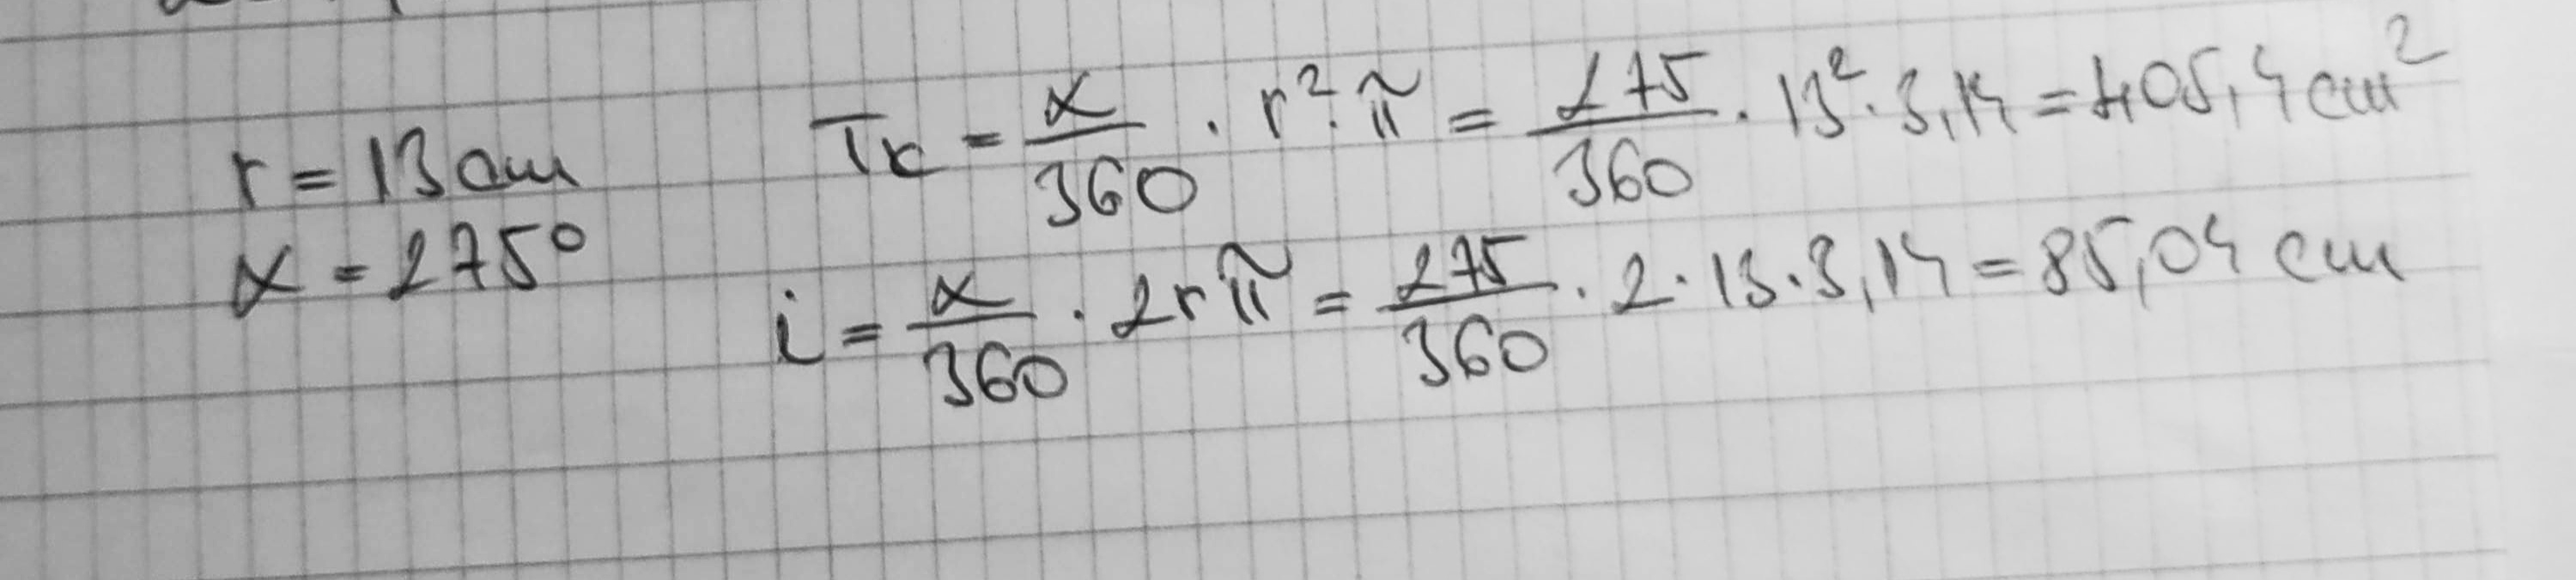 r = 13 cm
α = 275°
Tk = α/360 · r² · π = 275/360 · 13² · 3,14 = 405,4 cm²
i = α/360 · 2rπ = 275/360 · 2 · 13 · 3,14 = 85,04 cm